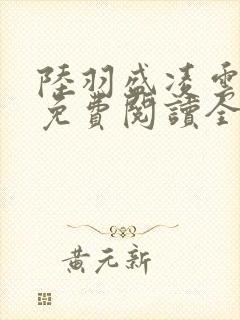 陸羽盛凌雲
免費閱讀全
黃元新